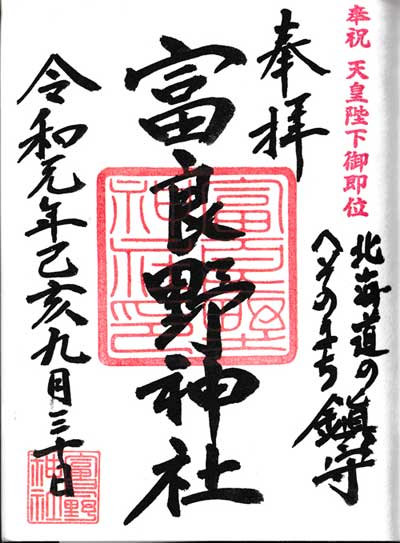 奉祝 天皇陛下御即位
奉拝
北海道の
へそのまち鎮守
富良野神社
富良野神社印
令和元年己亥九月三十日
富良野神社